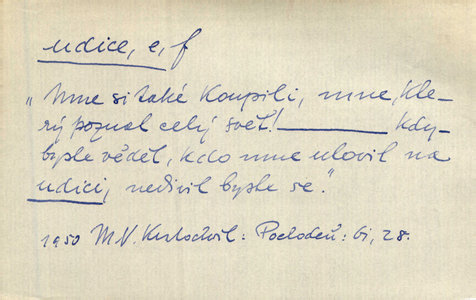 udice, e, f
„Mne si také koupili, mne, kte-
rý poznal celý svět! ______ Kdy-
byste věděl, kdo mne ulovil na
udici, nedivil byste se."
1950 M.V. Kratochvil: Pochodeň: 61, 28.